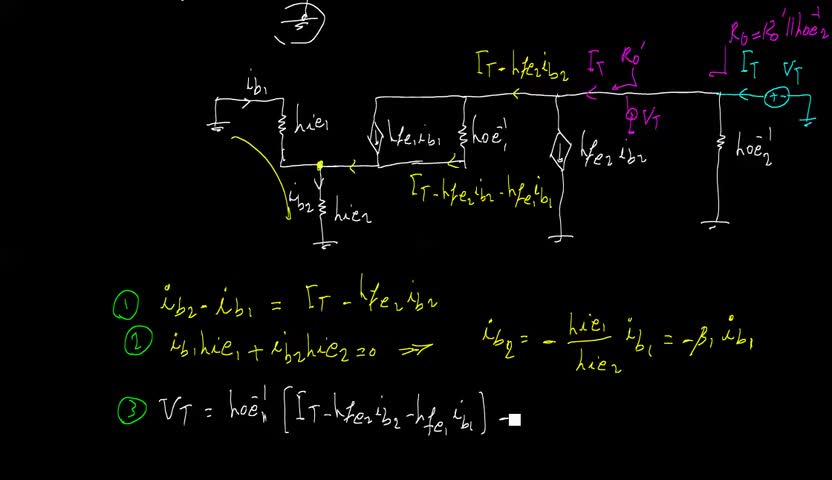 R₀ = R₀' || hoe₂⁻¹
I_T - hfe₂ i_b2
I_T R₀'
I_T V_T
i_b1
hie₁
hfe₁ i_b1
hoe₁⁻¹
V_T
hfe₂ i_b2
hoe₂⁻¹
I_T - hfe₂ i_b2 - hfe₁ i_b1
i_b2
hie₂
① i_b2 - i_b1 = I_T - hfe₂ i_b2
② i_b1 hie₁ + i_b2 hie₂ = 0 ⇒ i_b2 = - hie₁/hie₂ i_b1 = -β₁ i_b1
③ V_T = hoe₁⁻¹ [I_T - hfe₂ i_b2 - hfe₁ i_b1] -